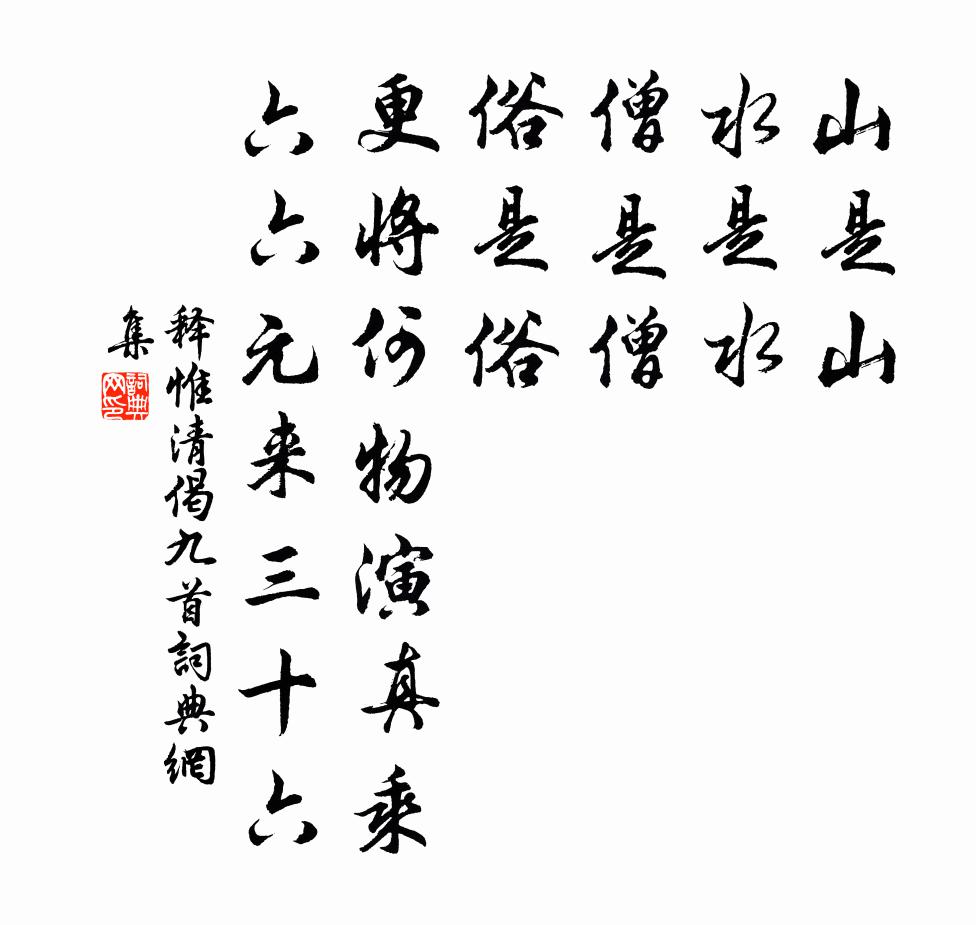 山是山
水是水
僧是僧
俗是俗
更将何物演真乘
六六元来三十六
释惟清偈九首詞典網
集
詞典
网印